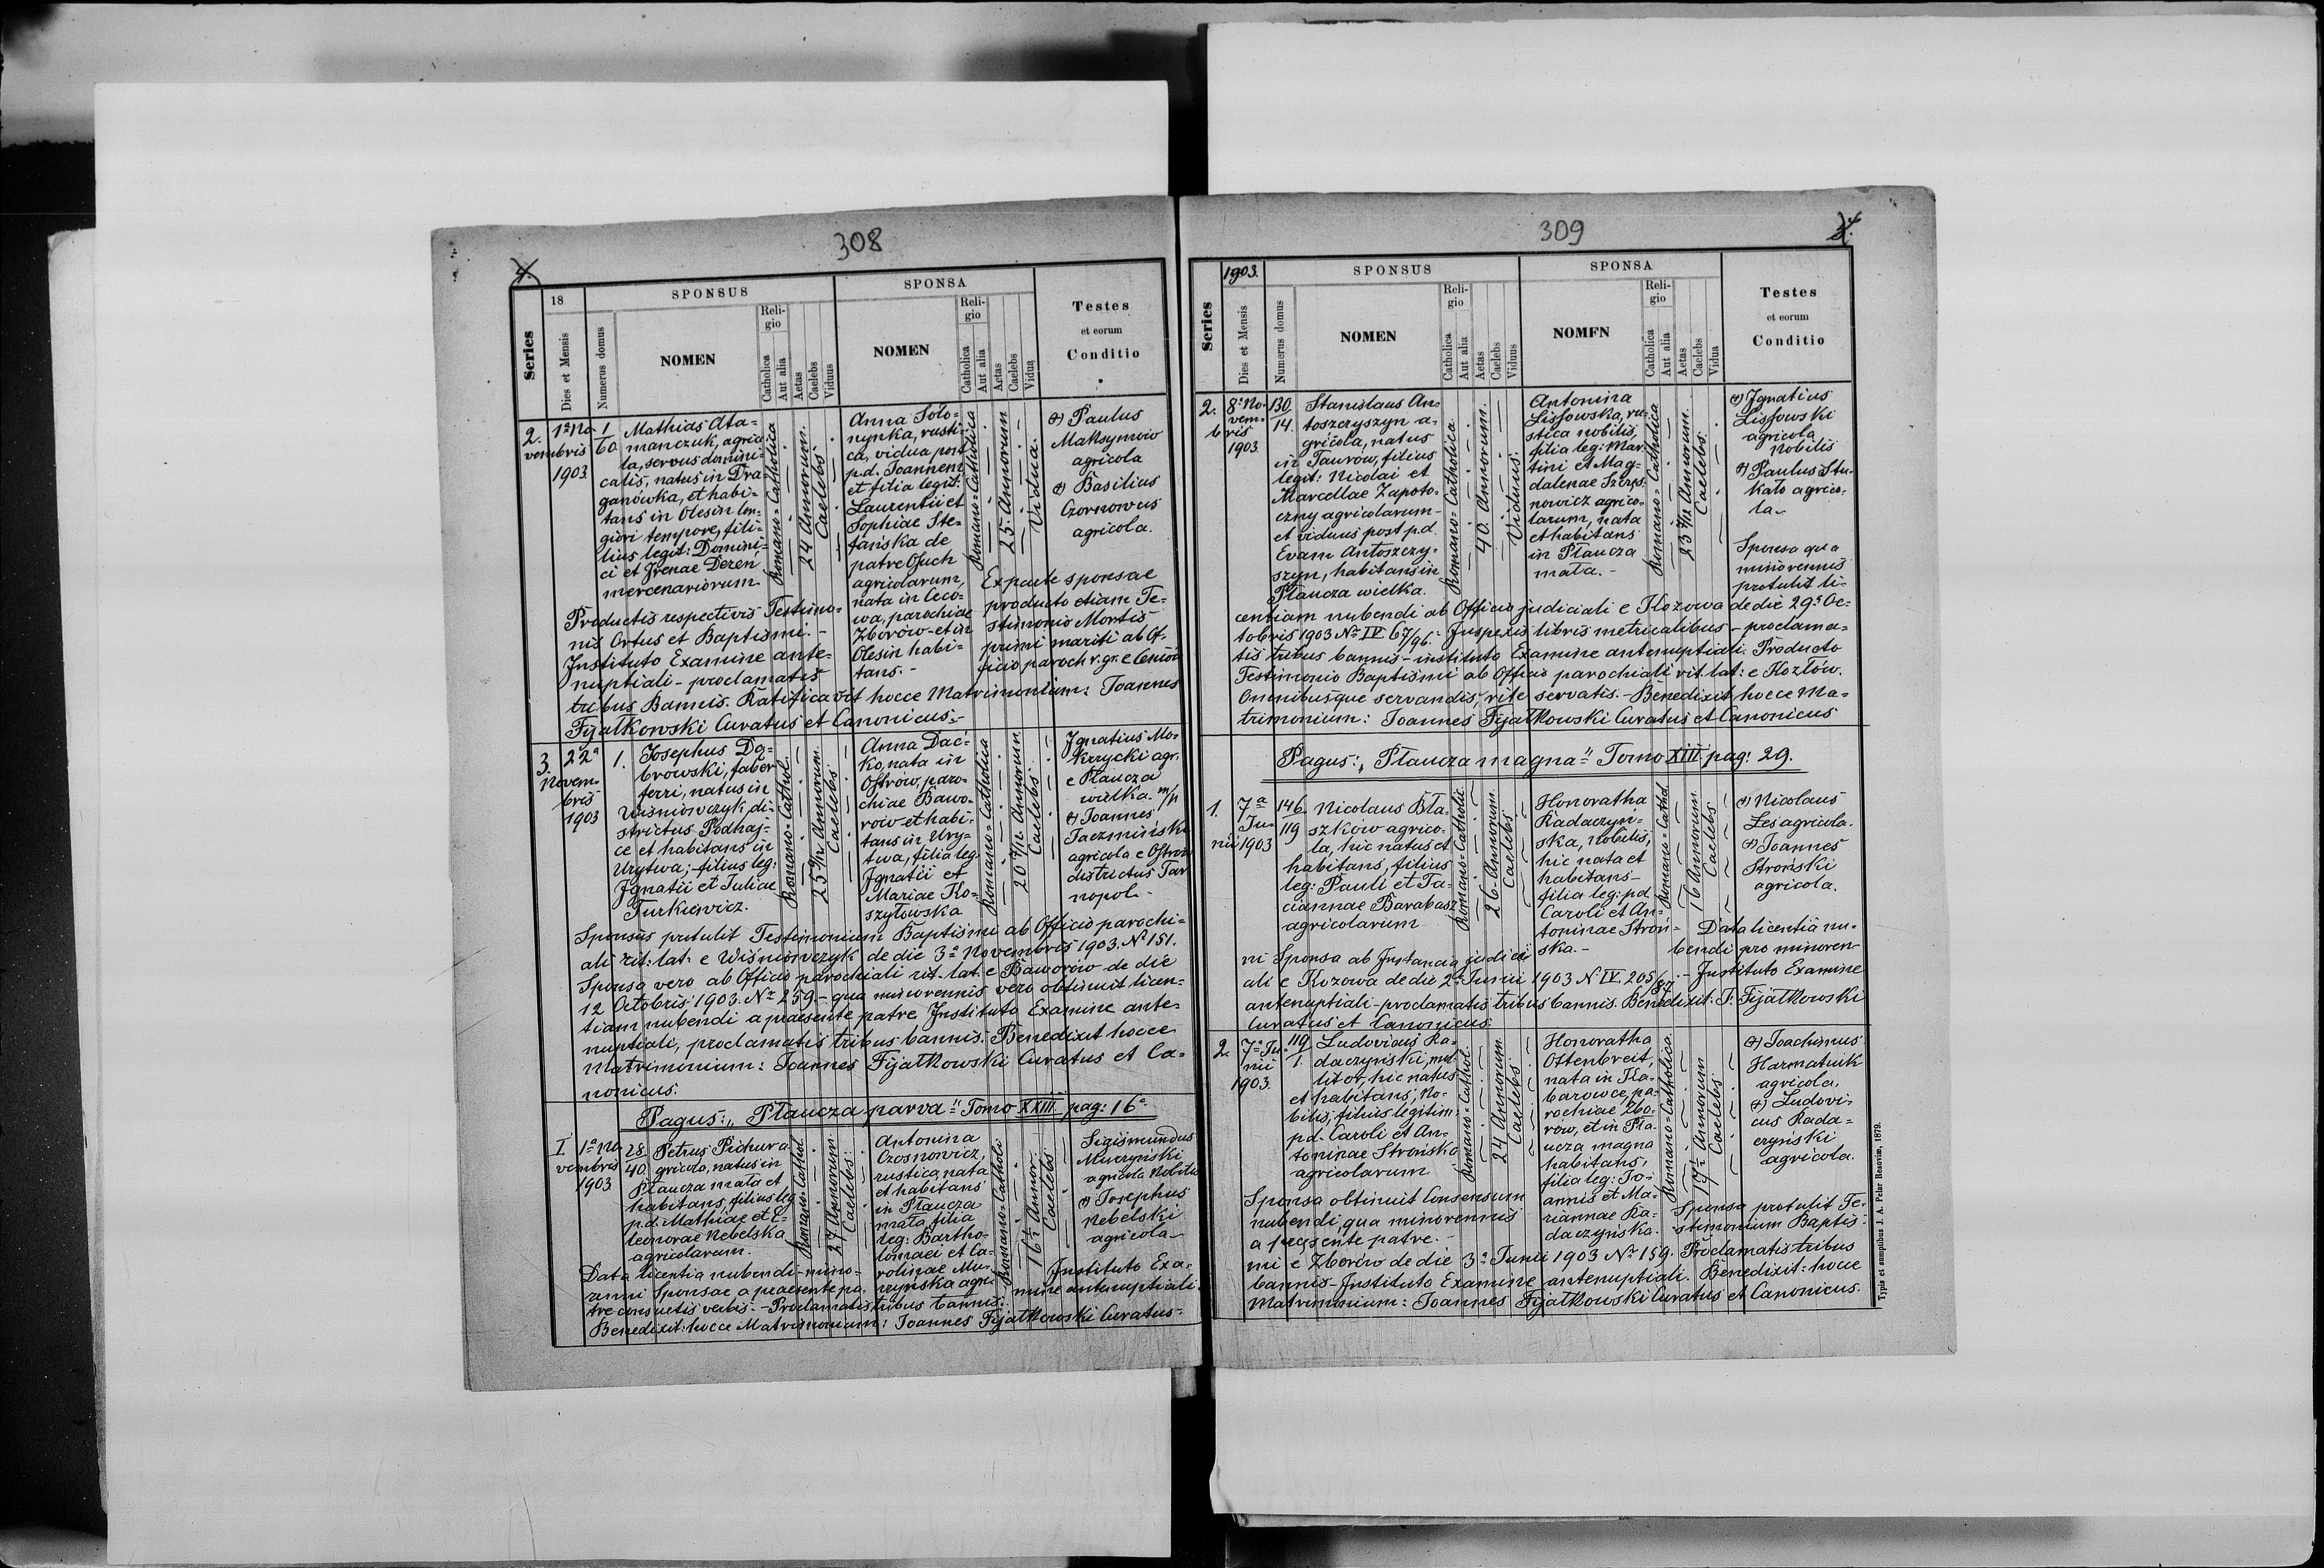 308
4.
18
SPONSUS
SPONSA
Testes
et eorum
Conditio
Series
Dies et Mensis
Numerus domus
NOMEN
Reli-
gio
Catholica
Aut alia
Aetas
Caelebs
Viduus
NOMEN
Reli-
gio
Catholica
Aut alia
Aetas
Caelebs
Vidua
2.
1ª No-
vembris
1903.
1
60.
Mathias Ata-
manczuk, agrico-
la, servus domini-
calis, natus in Dra-
ganówka, et habi-
tans in Olesin lon-
giori tempore, fili-
lius legit: Domini-
ci et Irenae Dereń
mercenariorum
Romano-Catholica
24 Annorum.
Caelebs.
Anna Soło-
nynka, rusti-
ca, vidua post
p.d. Joannem
et filia legit:
Laurentii et
Sophiae Ste-
fańska de
patre Osuch
agricolarum,
nata in Ceco-
wa, parochiae
Zborów- et in
Olesin habi-
tans.-
Romano-Catholica
25. Annorum
Vidua.
+) Paulus
Maksymow
agricola
+) Basilius
Czornowus
agricola.
Productis respectivis Testimo-
niis Ortus et Baptismi.-
Instituto Examine ante-
nuptiali - proclamatis
Ex parte sponsae
producto etiam Te-
stimonio Mortis
primi mariti ab Of-
ficio paroch. r. gr. e Ceniów
tribus Bannis. Ratificavit hocce Matrimonium: Joannes
Fijałkowski Curatus et Canonicus.-
3.
22ª
Novem-
bris
1903
1.
Josephus Dą-
browski, faber
ferri, natus in
Wiśniowczyk, di-
strictus Podhaj-
ce et habitans in
Urytwa; filius leg:
Ignatii et Juliae
Turkiewicz.
Romano-Cathol.
25 9/12 Annorum.
Caelebs.
Anna Dać-
ko, nata in
Ostrów, paro-
chiae Bawo-
rów et habi-
tans in Ury-
twa, filia leg.
Ignatii et
Mariae Ko-
szyłowska
Romano-Catholica
20 7/12 Annorum
Caelebs.
Ignatius Mo-
krzycki agr.
e Płaucza
wielka. m/p
+) Joannes
Taczmiński
agricola e Ostrów
districtus Tar
nopol-
Sponsus protulit Testimonium Baptismi ab Officio parochi-
ali rit: lat: e Wiśniowczyk de die 3ª Novembris 1903. Nº 151.
Sponsa vero ab Officio parochiali rit. lat. e Baworów de die
12 Octobris 1903. Nº 259.- qua minorennis vero obtinuit licen-
tiam nubendi a praesente patre Instituto Examine ante-
nuptiali, proclamatis tribus bannis. Benedixit hocce
Matrimonium: Joannes Fijałkowski Curatus et Ca-
nonicus.
Pagus: „Płaucza parva" Tomo XXIII. pag: 16ª
I.
1ª No-
vembris
1903.
28.
40.
Petrus Pichur a-
gricola, natus in
Płaucza mała et
habitans, filius leg
p.d. Mathiae et E-
leonorae Nebelska
agricolarum.
Romano-Cathol.
27 Annorum.
Caelebs.
Antonina
Czosnowicz,
rustica, nata
et habitans
in Płaucza
mała, filia
leg: Bartho-
lomaei et Ca-
rolinae Mu-
czyńska agri-
Romano-Catholi
16½ Annor.
Caelebs
Sigismundus
Muczyński
agricola Nobilis
+) Josephus
Nebelski
agricola-
Data licentia nubendi-mino-
renni Sponsae a praesente pa-
Instituto Exa-
mine antenuptiali.
tre consuetis verbis.- Proclamatis tribus bannis:
Benedixit: hocce Matrimonium: Joannes Fijałkowski Curatus-
309
4.
1903.
SPONSUS
SPONSA
Testes
et eorum
Conditio
Series
Dies et Mensis
Numerus domus
NOMEN
Reli-
gio
Catholica
Aut alia
Aetas
Caelebs
Viduus
NOMFN
Reli-
gio
Catholica
Aut alia
Aetas
Caelebs
Vidua
2.
8ª No-
vem-
bris
1903.
130.
14.
Stanislaus An-
toszczyszyn a-
gricola, natus
in Taurów, filius
legit: Nicolai et
Marcellae Zapoto-
czny agricolarum-
et viduus post p.d.
Evam Antoszczy-
szyn, habitans in
Płaucza wielka.
Romano-Catholica
40. Annorum.
Viduus.
Antonina
Lissowska, ru-
stica nobilis,
filia leg: Mar-
tini et Mag-
dalenae Szczęs-
nowicz agrico-
larum, nata
et habitans
in Płaucza
mała.-
Romano-Catholica
23 7/12 Annorum.
Caelebs.
+) Ignatius
Lissowski
agricola
Nobilis
+) Paulus Stu-
kało agrico-
la.
Sponsa qua
minorennis
protulit li-
centiam nubendi ab Officio judiciali e Kozowa de die 29ª Oc-
tobris 1903 Nº IV. 67/96.- Inspexis libris metricalibus - proclama-
tis tribus bannis - instituto Examine antenuptiali. Producto
Testimonio Baptismi ab Officio parochiali rit. lat: e Kozłów.
Omnibusque servandis, rite servatis.- Benedixit hocce Ma-
trimonium: Joannes Fijałkowski Curatus et Canonicus
Pagus: „Płaucza magna" Tomo XIII pag: 29.
1.
7ª
Ju-
nii 1903
146.
119
Nicolaus Bła-
szków agrico-
la, hic natus et
habitans, filius
leg: Pauli et Ta-
ciannae Barabasz
agricolarum
Romano-Catholic.
26-Annorum.
Caelebs
Honoratha
Radaczyń-
ska, Nobilis,
hic nata et
habitans-
filia leg: p.d.
Caroli et An-
toninae Stroń-
ska.-
Romano-Cathol.
16 Annorum.
Caelebs
+) Nicolaus
Les agricola.
+) Joannes
Stroński
agricola.
Data licentia nu-
bendi pro minoren-
ni Sponsa ab Instancia judici
ali e Kozowa de die 2ª Junii 1903 N. IV. 205/87.- Instituto Examine
antenuptiali - proclamatis tribus bannis. Benedixit: J. Fijałkowski
Curatus et Canonicus.
2.
7ª Ju-
nii
1903.
119
1.
Ludovicus Ra-
daczyński, mol-
litor, hic natus
et habitans, No-
bilis, filius legitim:
p.d. Caroli et An-
toninae Strońska
agricolarum
Romano-Cathol.
24 Annorum
Caelebs.
Honoratha
Ottenbreit,
nata in Ka-
barowce, pa-
rochiae Zbo-
rów, et in Pła-
ucza magna
habitans,
filia leg: Jo-
annis et Ma-
riannae Ra-
daczyńska.
Romano-Catholica
19½ Annorum
Caelebs.
+) Joachimus
Harmatiuk
agricola,
+) Ludovi-
cus Rada-
czyński
agricola.
Sponsa obtinuit Consensum
nubendi, qua minorennis
a praesente patre.-
Sponsa protulit Te-
stimonium Baptis-
mi e Zborów de die 3ª Junii 1903 Nº 159. Proclamatis tribus
bannis- Instituto Examine antenuptiali. Benedixit: hocce
Matrimonium: Joannes Fijałkowski Curatus et Canonicus.
Typis et sumptibus J. A. Pelar Resoviae, 1879.